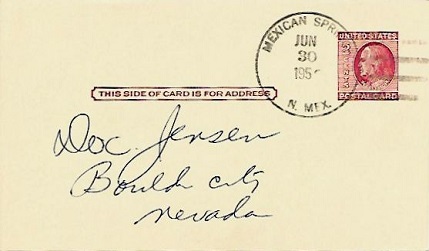 MEXICAN SPR
JUN
30
195
N. MEX.
UNITED STATES
POSTAL CARD
THIS SIDE OF CARD IS FOR ADDRESS
Doc. Jensen
Boulder city
nevada